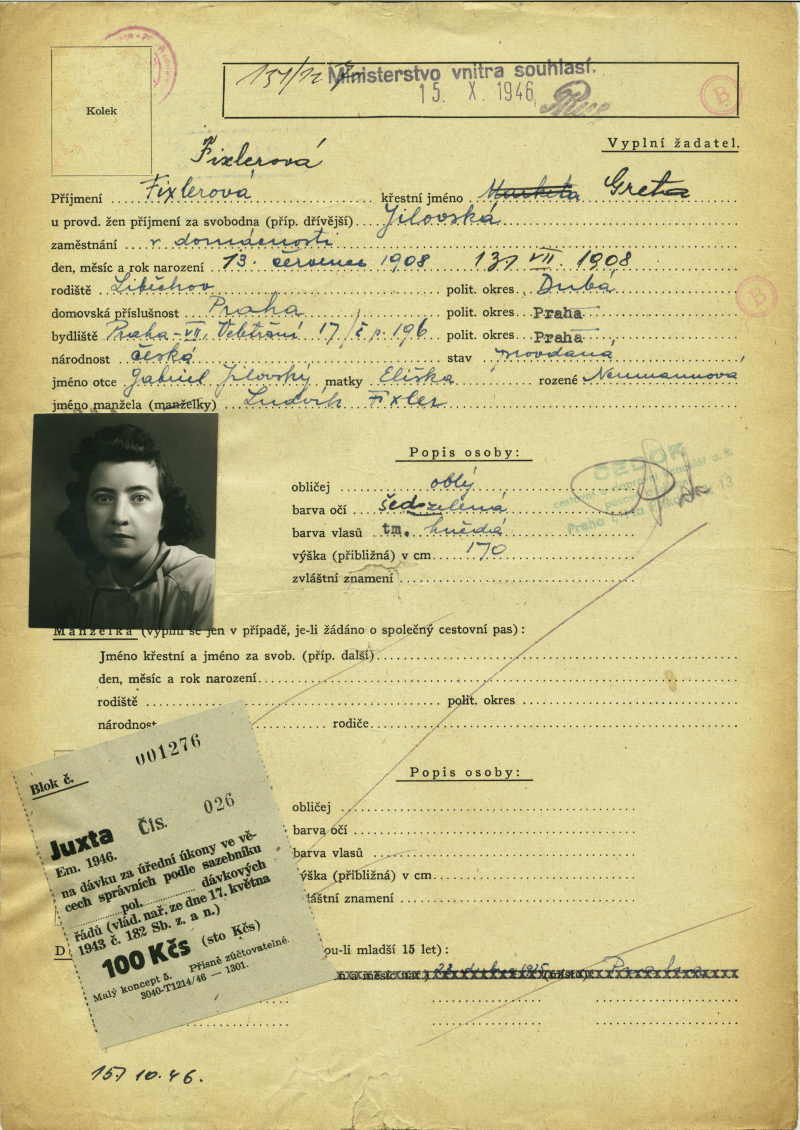 Kolek
151/12
Ministerstvo vnitra souhlasí.
15. X. 1946
B
Fixlerová
Vyplní žadatel.
Příjmení Fixlerová křestní jméno Markéta Greta
u provd. žen příjmení za svobodna (příp. dřívější) Jilovská
zaměstnání v domácnosti
den, měsíc a rok narození 13. červenec 1908 13. VII. 1908
rodiště Liběchov polit. okres Dubá
B
domovská příslušnost Praha polit. okres Praha
bydliště Praha-VII, 17/č p. 196 polit. okres Praha
národnost česká stav provdaná
jméno otce Gabriel Jilovský matky Eliška rozené Neumannová
jméno manžela (manželky) Ludvík Fixler
Popis osoby:
ČEDOK
obličej oblý
barva očí šedozelená
barva vlasů tm. hnědá
výška (přibližná) v cm 170
zvláštní znamení
Manželka (vyplní se jen v případě, je-li žádáno o společný cestovní pas):
Jméno křestní a jméno za svob. (příp. další)
den, měsíc a rok narození
rodiště polit. okres
národnost rodiče
Popis osoby:
obličej
barva očí
barva vlasů
výška (přibližná) v cm
zvláštní znamení
Blok č. 001276
Juxta Čís. 026
Em. 1946.
na dávku za úřední úkony ve vě-
cech správních podle sazebníku
pol. dávkových
řádů (vlád. nař. ze dne 17. května
1943 č. 182 Sb. z. a n.)
100 Kčs (sto Kčs)
Malý koncept 5. Přísně zúčtovatelné.
3040-T1214/46 — 1301.
D ou-li mladší 15 let):
15/10.46.